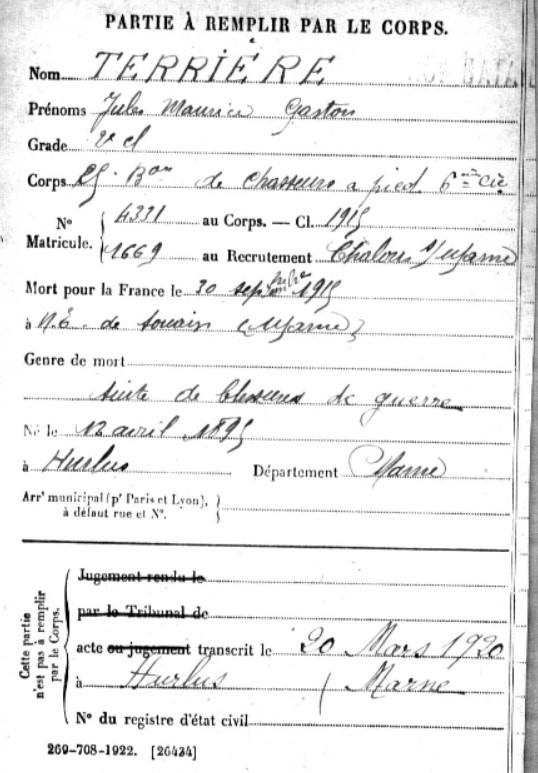 PARTIE À REMPLIR PAR LE CORPS.
Nom TERRIÈRE
Prénoms Jules Maurice Gaston
Grade 2e cl
Corps Bon de Chasseurs à pied 6me Cie
No 4331 au Corps. — Cl. 1915
Matricule. 1669 au Recrutement Chalons s/Marne
Mort pour la France le 30 septembre 1915
à N.E. de Souain (Marne)
Genre de mort
suite de blessures de guerre
Né le 12 avril 1895
à Hurlus Département Marne
Arrt municipal (pr Paris et Lyon),
à défaut rue et No.
Cette partie
n'est pas à remplir
par le Corps.
Jugement rendu le
par le Tribunal de
acte ou jugement transcrit le 20 Mars 1920
à Hurlus (Marne
No du registre d'état civil
269-708-1922. [26434]